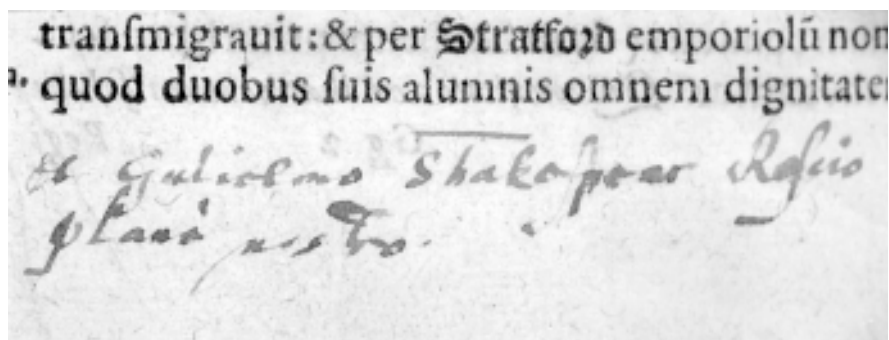 tranſmigrauit: & per Stratford emporiolū non
quod duobus ſuis alumnis omnem dignitate
et Gulielmo Shakespear Roſcio
planè noſtro.